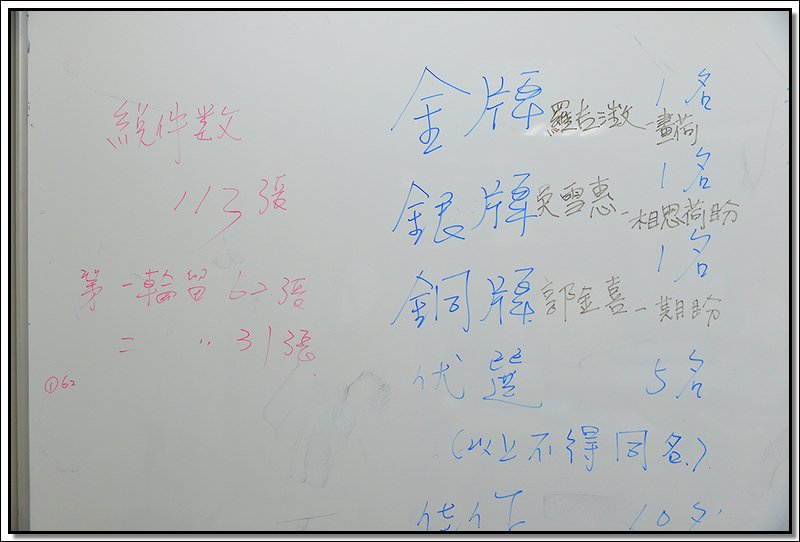 総件数
113張
第一輪留62張
二 〃 31張
①62
金牌 1名
羅吉淑-畫荷
銀牌 1名
吳雪惠-相思荷盼
銅牌 1名
郭金喜-期盼
优選 5名
(以上不得同名.)
佳作 10名